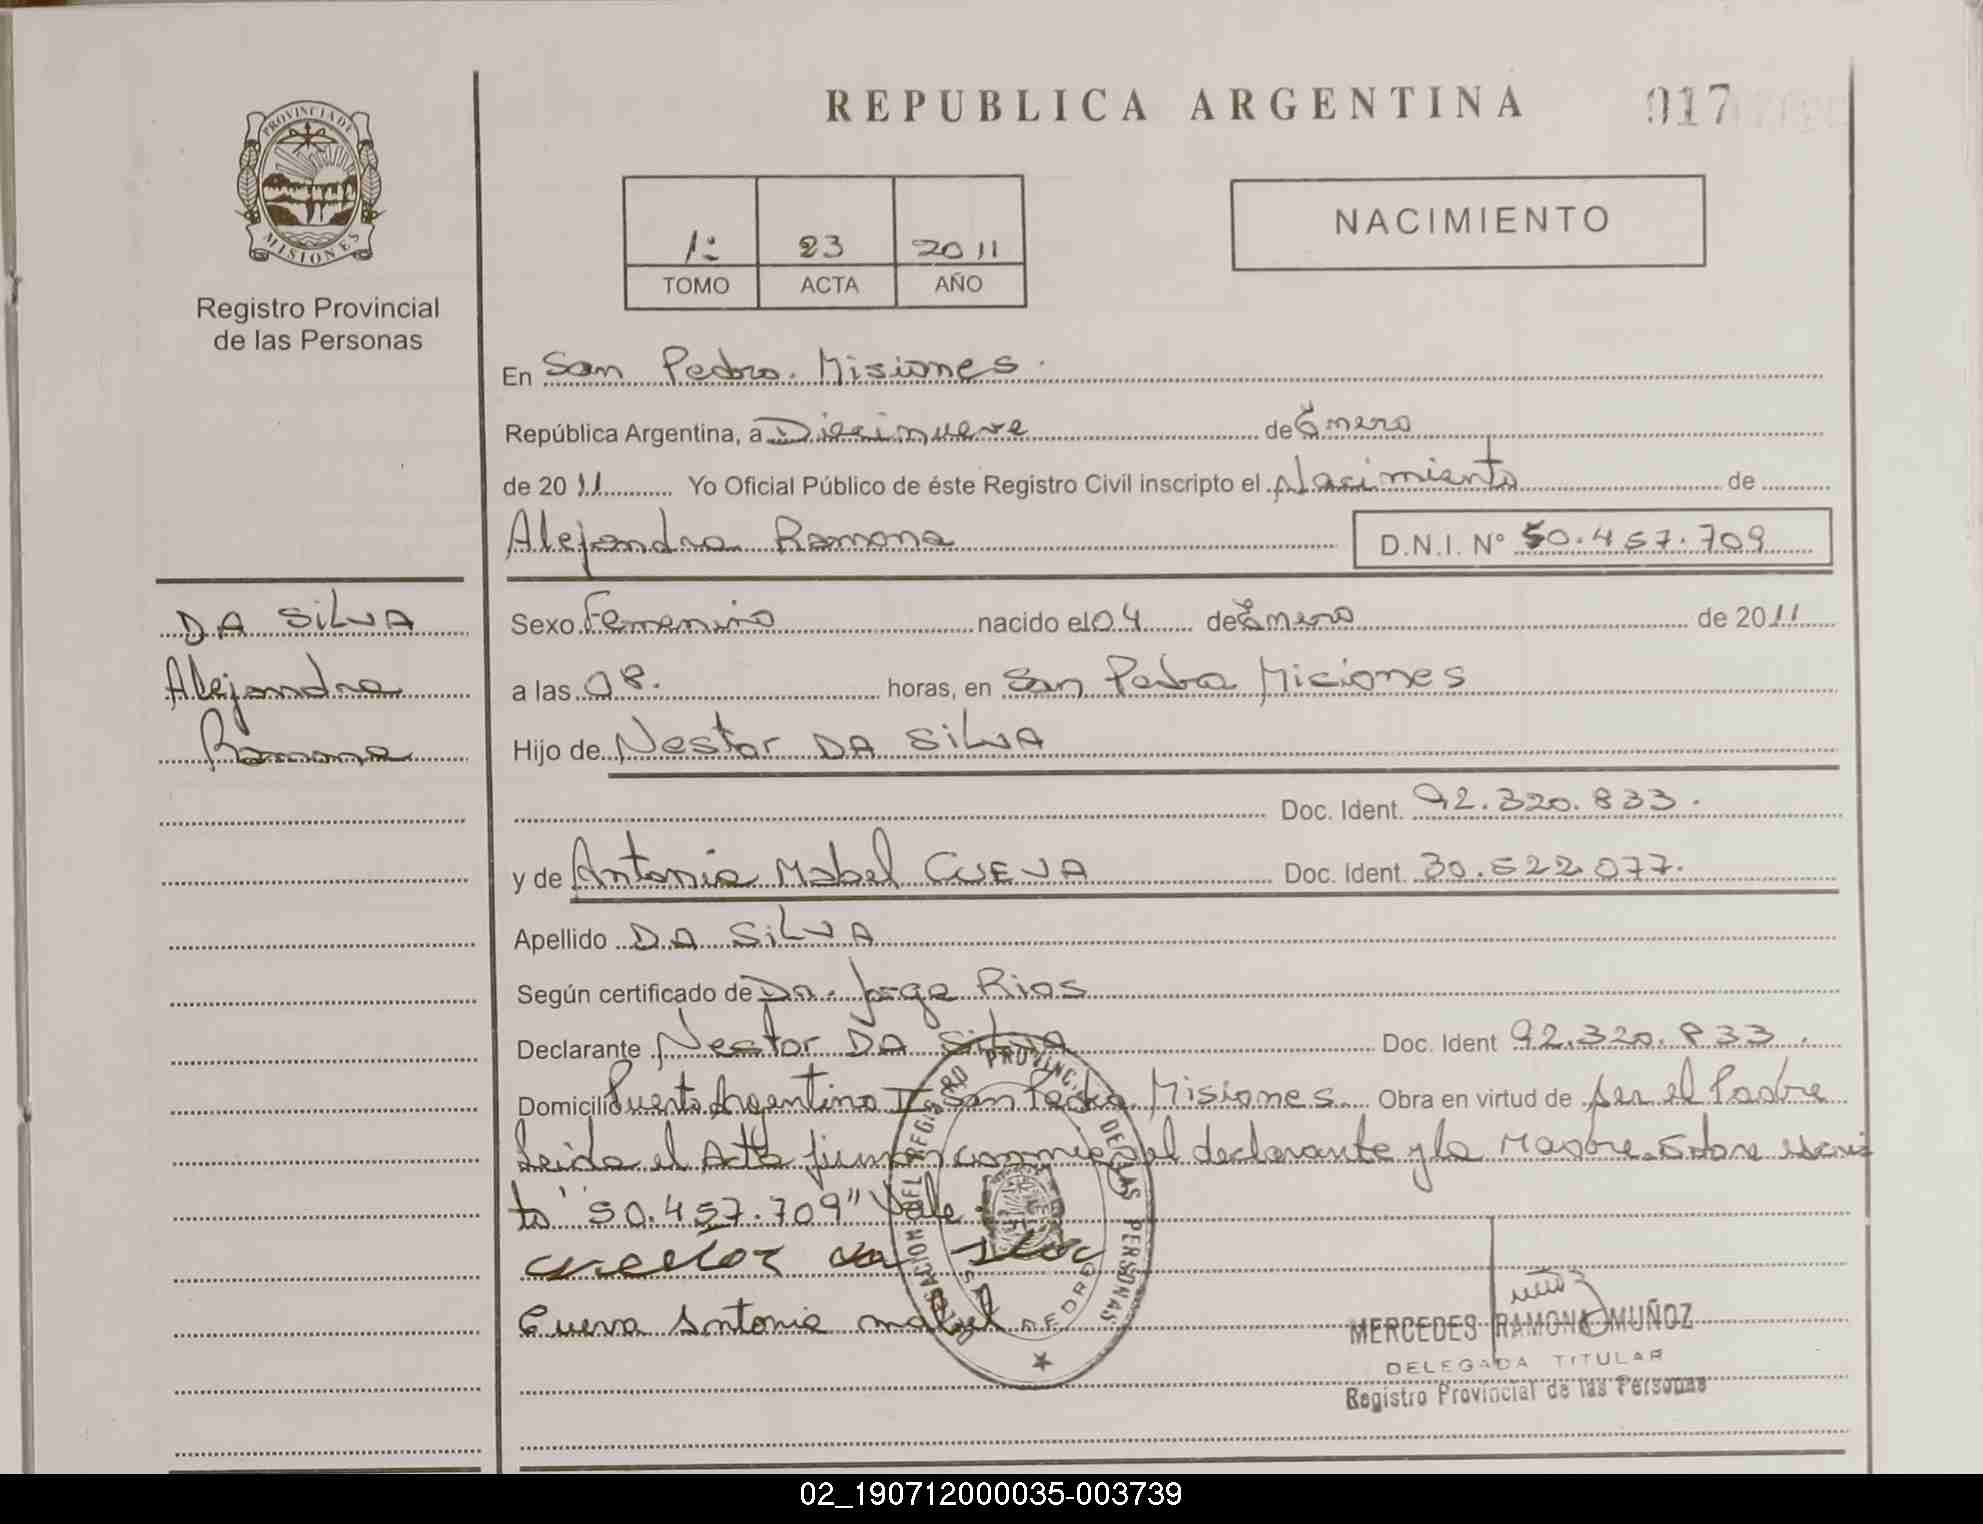 REPUBLICA ARGENTINA
017
PROVINCIA DE
MISIONES
Registro Provincial
de las Personas
1º 23 2011
TOMO ACTA AÑO
NACIMIENTO
En San Pedro. Misiones.
República Argentina, a Diecinueve de Enero
de 2011 Yo Oficial Público de éste Registro Civil inscripto el Nacimiento de
Alejandra Ramona D.N.I. Nº 50.457.709
DA SILVA
Alejandra
Ramona
Sexo Femenino nacido el 04 de Enero de 2011
a las 08. horas, en San Pedro Miciones
Hijo de Nestor DA SILVA
Doc. Ident. 92.320.833.
y de Antonia Mabel CUEVA Doc. Ident. 30.522.077.
Apellido DA SILVA
Según certificado de Dr. Jorge Rios
Declarante Nestor DA SILVA Doc. Ident 92.320.833.
Domicilio Puerto Argentino II San Pedro Misiones. Obra en virtud de ser el Padre
Leida el Acta firman conmigo el declarante y la Madre. Sobre escri
to "50.457.709" Vale.
nestor da silva
Cueva Antonia mabel
DELEGACION DEL REGISTRO PROVINC. DE LAS PERSONAS
SAN PEDRO
MERCEDES RAMONA MUÑOZ
DELEGADA TITULAR
Registro Provincial de las Personas
02_190712000035-003739